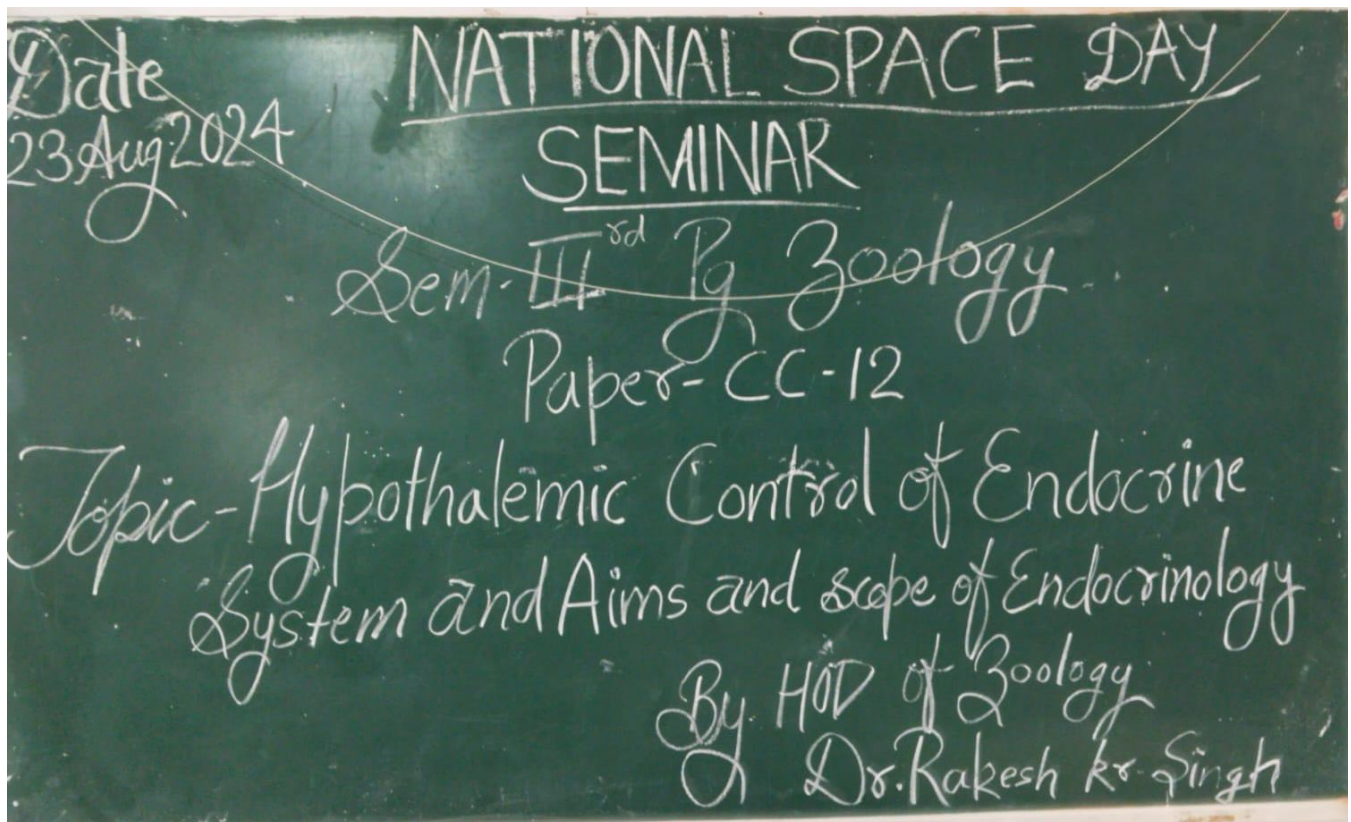 Date
23 Aug 2024
NATIONAL SPACE DAY
SEMINAR
Sem-IIIrd Pg Zoology
Paper-CC-12
Topic-Hypothalemic Control of Endocrine
System and Aims and scope of Endocrinology
By HOD of Zoology
Dr. Rakesh kr. Singh